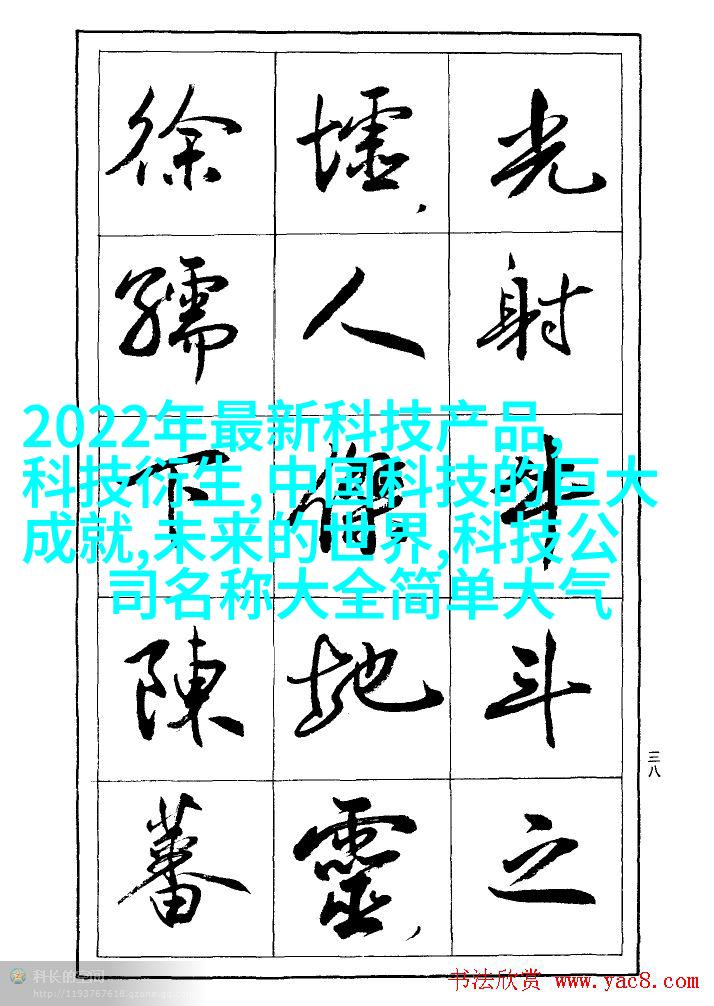 光射牛斗之
墟,人傑地靈,
徐孺下陳蕃
2022年最新科技产品,
科技衍生,中国科技的巨大
成就,未来的世界,科技公
司名称大全简单大气
三八
科长的空间
http://1193767618.qzone.qq.com
书法欣赏 www.yac8.com